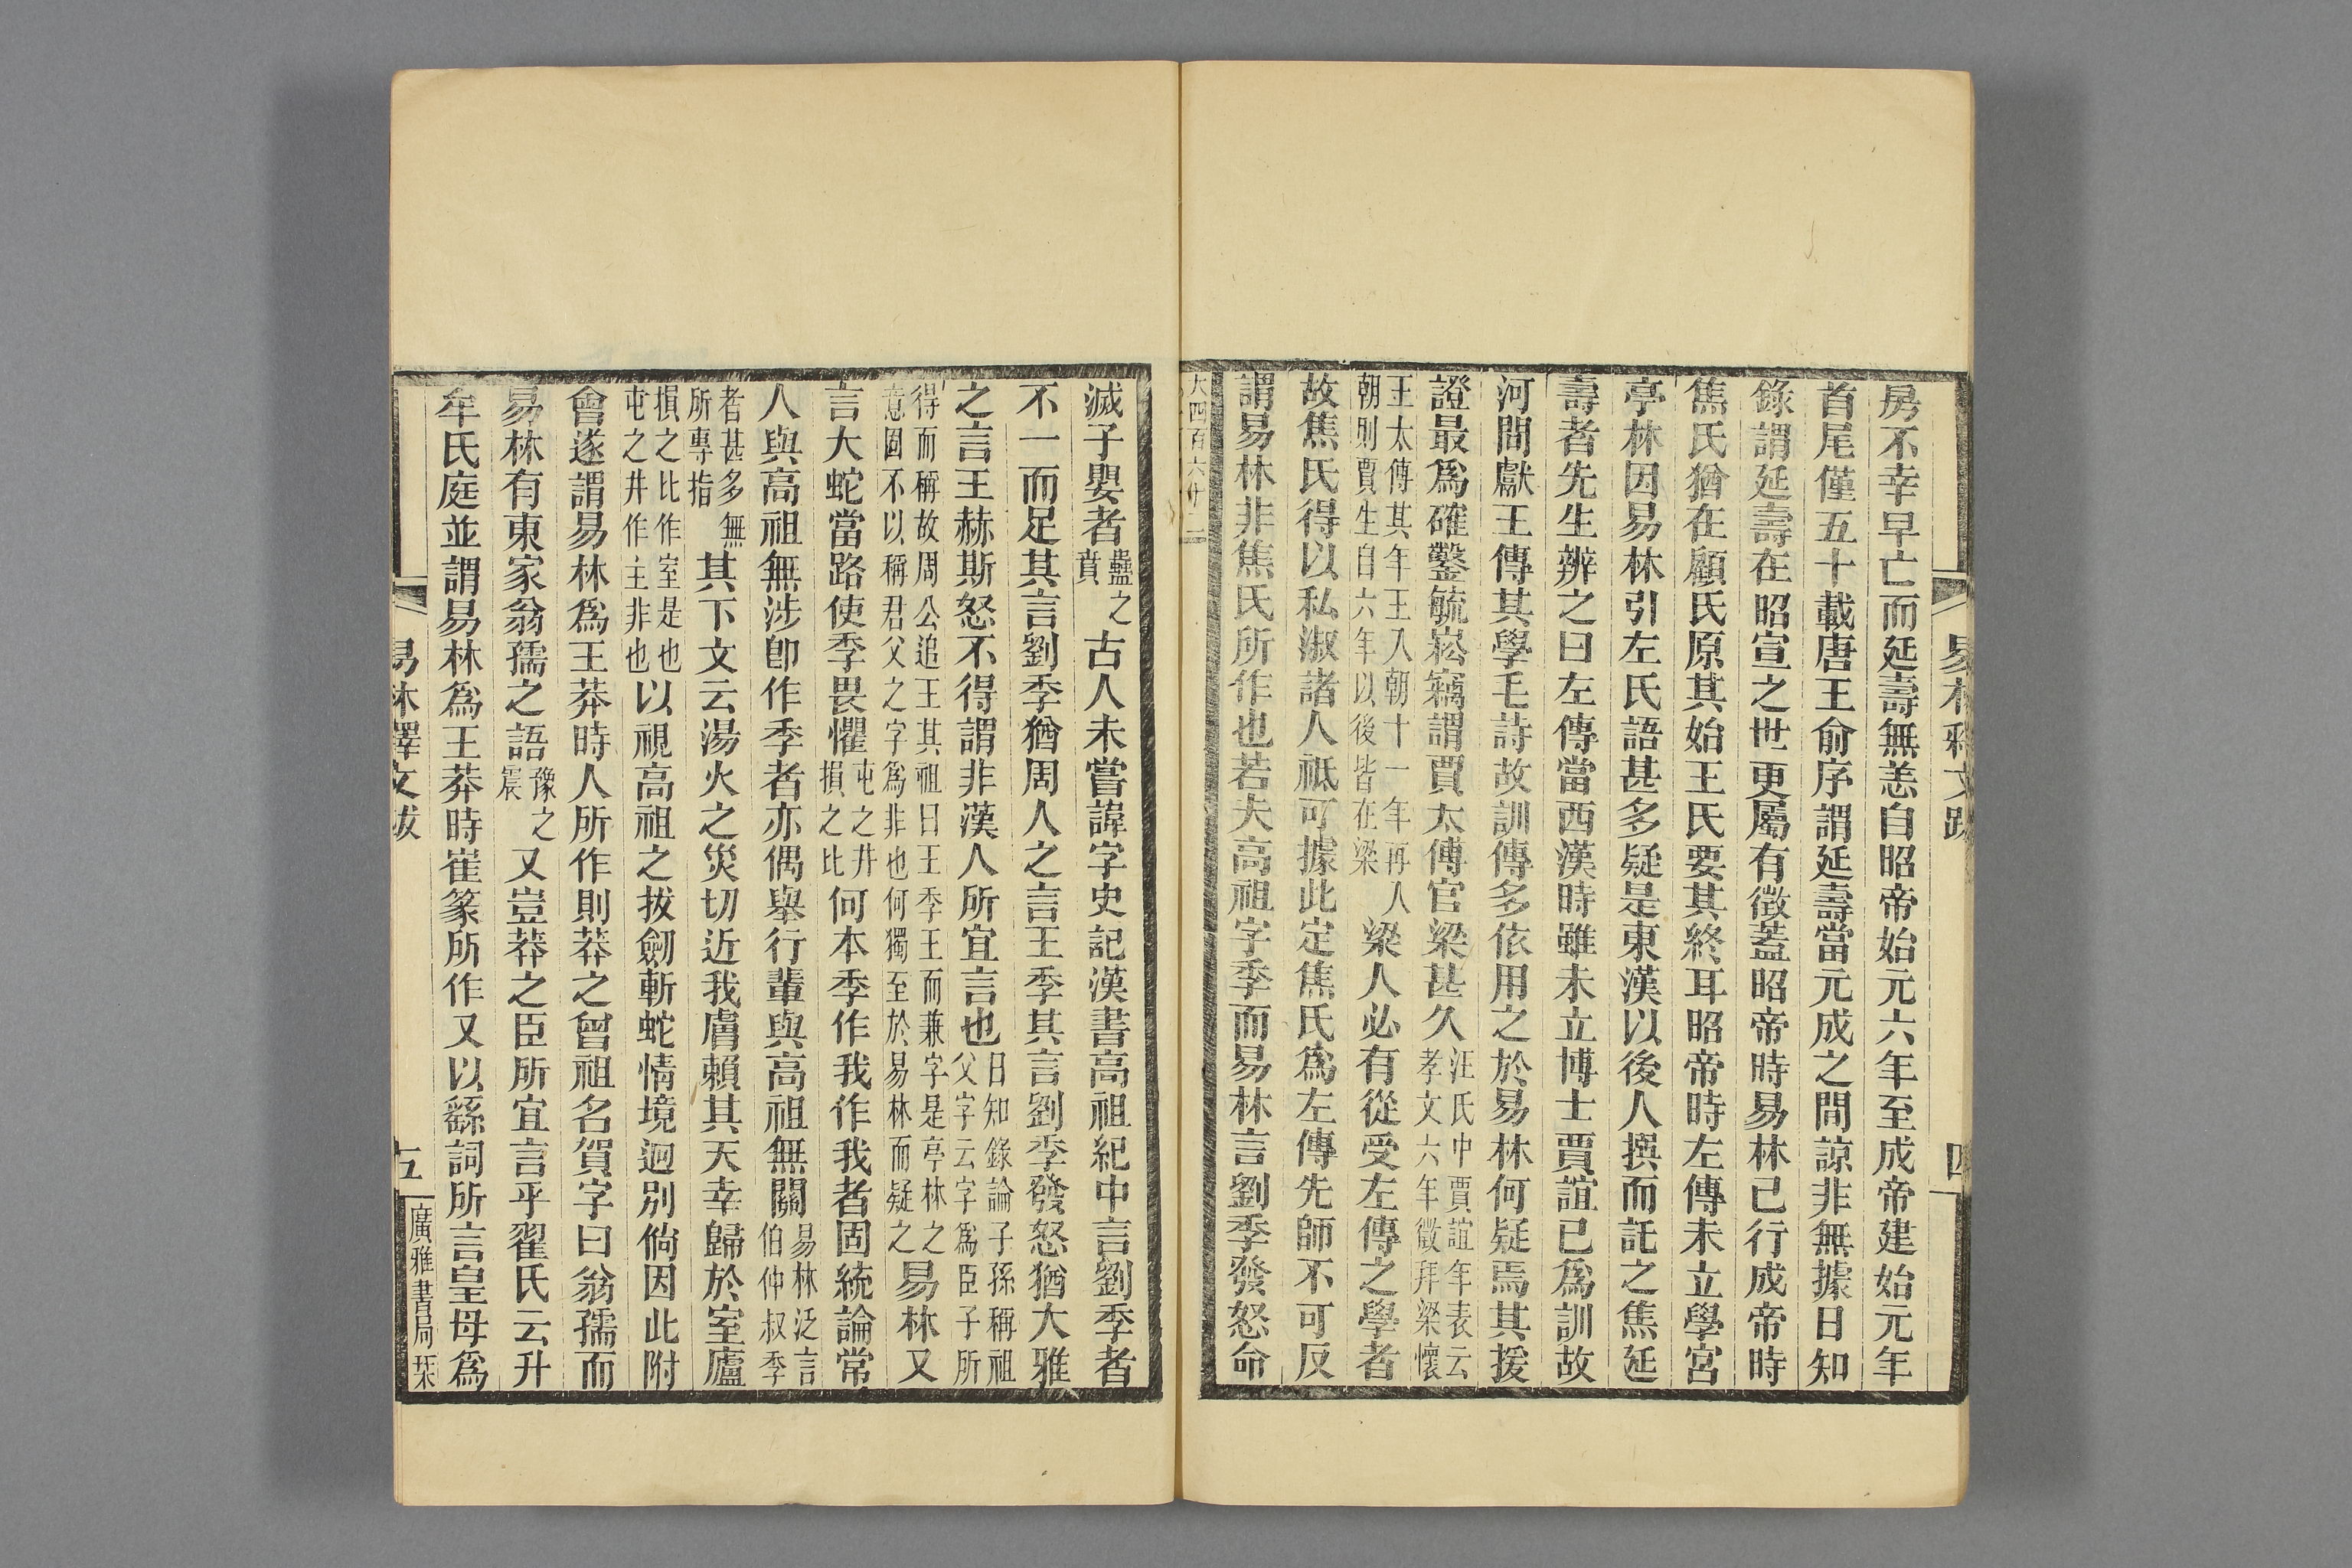 易林釋文跋
四
房不幸早亡而延壽無恙自昭帝始元六年至成帝建始元年
首尾僅五十載唐王俞序謂延壽當元成之間諒非無據日知
錄謂延壽在昭宣之世更屬有徵蓋昭帝時易林已行成帝時
焦氏猶在顧氏原其始王氏要其終耳昭帝時左傳未立學宮
亭林因易林引左氏語甚多疑是東漢以後人撰而託之焦延
壽者先生辨之曰左傳當西漢時雖未立博士賈誼已爲訓故
河間獻王傳其學毛詩故訓傳多依用之於易林何疑焉其援
證最爲確鑿毓崧竊謂賈太傅官梁甚久汪氏中賈誼年表云孝文六年徵拜梁懷
王太傅其年王入朝十一年再入朝則賈生自六年以後皆在梁梁人必有從受左傳之學者
故焦氏得以私淑諸人祇可據此定焦氏爲左傳先師不可反
謂易林非焦氏所作也若夫高祖字季而易林言劉季發怒命
大四百六廿二
滅子嬰者蠱之賁古人未嘗諱字史記漢書高祖紀中言劉季者
不一而足其言劉季猶周人之言王季其言劉季發怒猶大雅
之言王赫斯怒不得謂非漢人所宜言也日知錄論子孫稱祖父字云字爲臣子所
得而稱故周公追王其祖曰王季王而兼字是亭林之意固不以稱君父之字爲非也何獨至於易林而疑之易林又
言大蛇當路使季畏懼屯之井損之比何本季作我作我者固統論常
人與高祖無涉卽作季者亦偶舉行輩與高祖無關易林泛言伯仲叔季
者甚多無所專指其下文云湯火之災切近我膚賴其天幸歸於室廬
損之比作室是也屯之井作主非也以視高祖之拔劒斬蛇情境迥別倘因此附
會遂謂易林爲王莽時人所作則莽之曾祖名賀字曰翁孺而
易林有東家翁孺之語豫之震又豈莽之臣所宜言乎翟氏云升
牟氏庭並謂易林爲王莽時崔篆所作又以繇詞所言皇母爲
易林釋文跋
五
廣雅書局栞